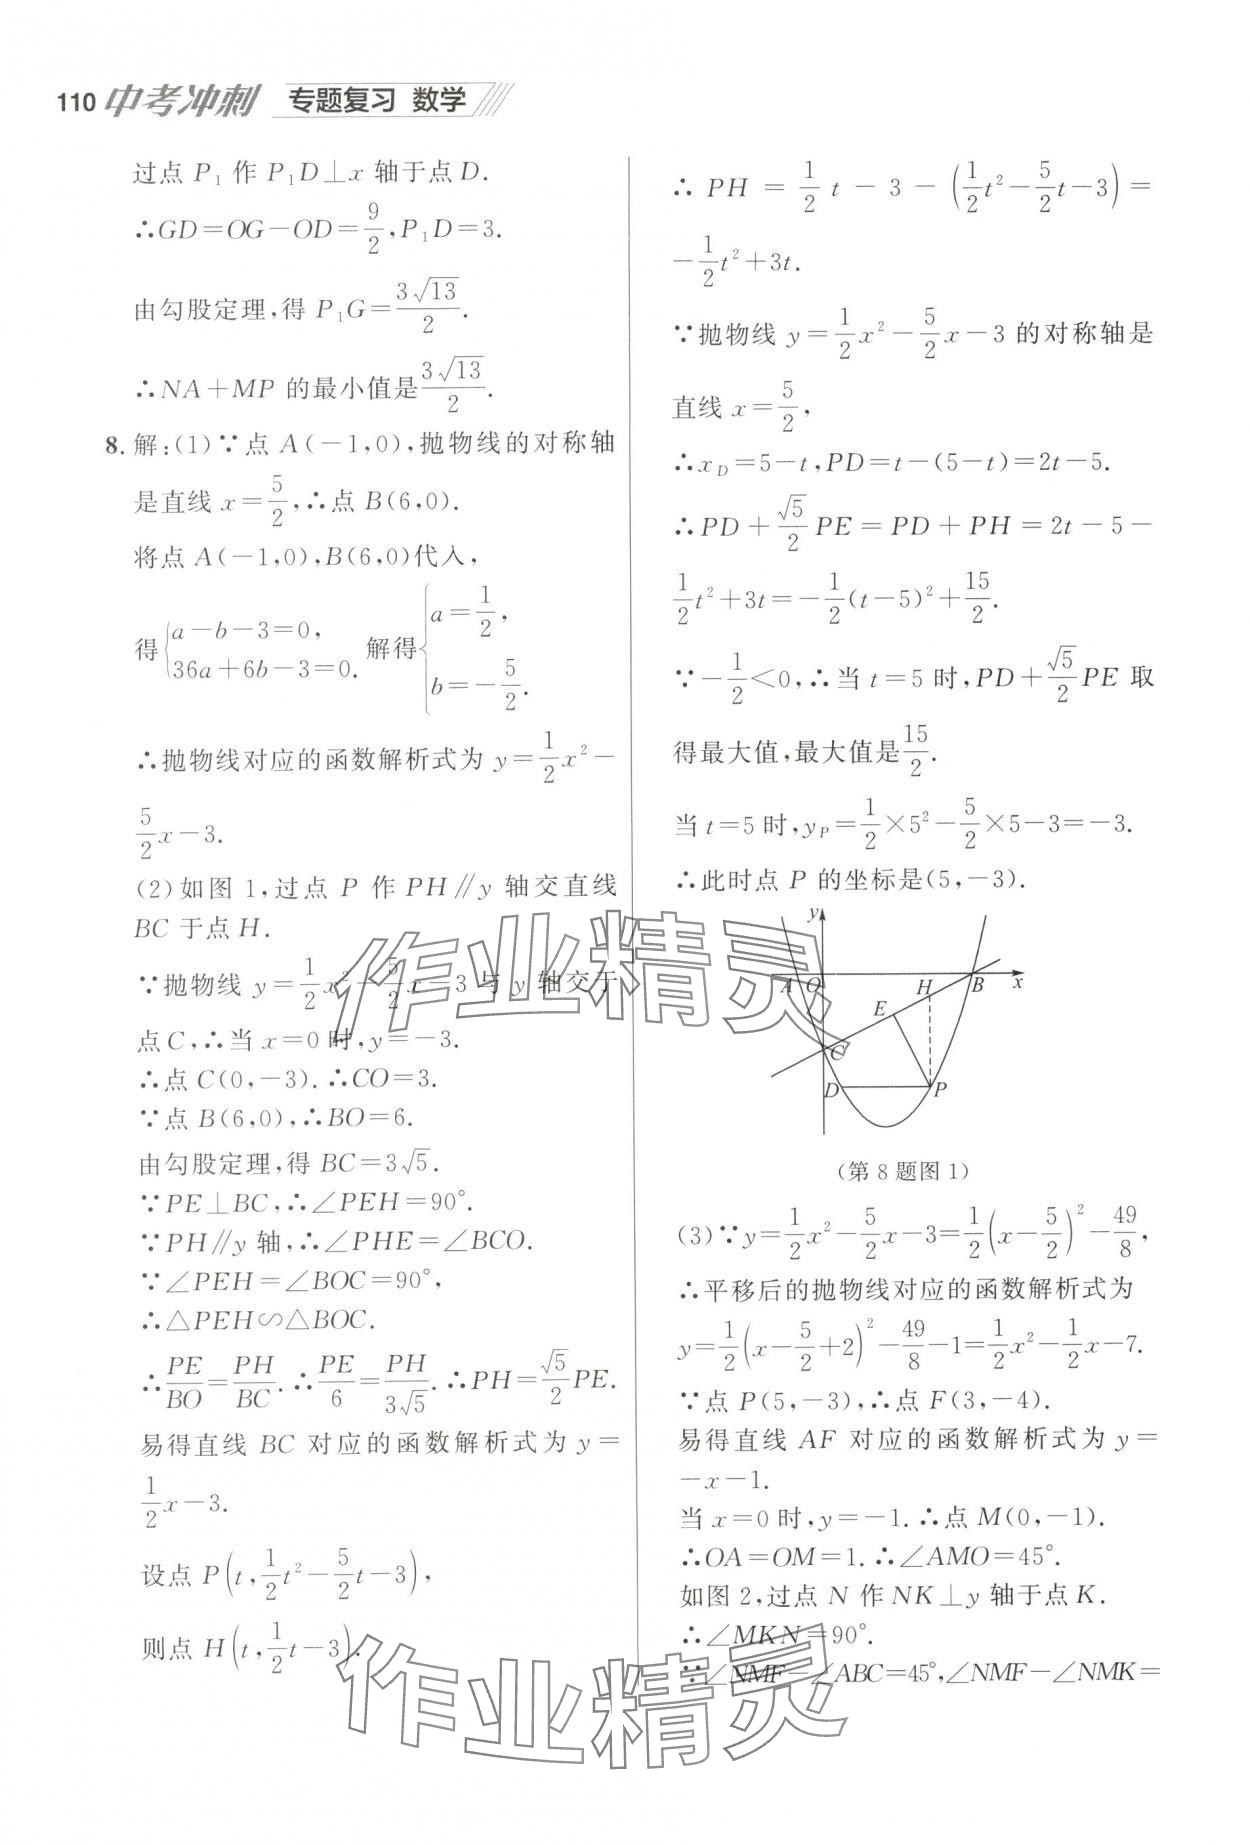 110 中考冲刺 专题复习 数学
过点 P₁ 作 P₁D⊥x 轴于点 D.
∴GD=OG-OD=9/2,P₁D=3.
由勾股定理,得 P₁G=3√13/2.
∴NA+MP 的最小值是3√13/2.
8. 解:(1)∵点 A(-1,0),抛物线的对称轴
是直线 x=5/2,∴点 B(6,0).
将点 A(-1,0),B(6,0)代入,
得{a-b-3=0, 36a+6b-3=0. 解得{a=1/2, b=-5/2.
∴抛物线对应的函数解析式为 y=1/2x²-
5/2x-3.
(2)如图 1,过点 P 作 PH∥y 轴交直线
BC 于点 H.
∵抛物线 y=1/2x²-5/2x-3 与 y 轴交于
点C,∴当 x=0 时,y=-3.
∴点 C(0,-3).∴CO=3.
∵点 B(6,0),∴BO=6.
由勾股定理,得 BC=3√5.
∵PE⊥BC,∴∠PEH=90°.
∵PH∥y 轴,∴∠PHE=∠BCO.
∵∠PEH=∠BOC=90°,
∴△PEH∽△BOC.
∴PE/BO=PH/BC.∴PE/6=PH/3√5.∴PH=√5/2PE.
易得直线 BC 对应的函数解析式为 y=
1/2x-3.
设点 P(t,1/2t²-5/2t-3),
则点 H(t,1/2t-3).
∴PH=1/2t-3-(1/2t²-5/2t-3)=
-1/2t²+3t.
∵抛物线 y=1/2x²-5/2x-3 的对称轴是
直线 x=5/2,
∴x_D=5-t,PD=t-(5-t)=2t-5.
∴PD+√5/2PE=PD+PH=2t-5-
1/2t²+3t=-1/2(t-5)²+15/2.
∵-1/2<0,∴当 t=5 时,PD+√5/2PE 取
得最大值,最大值是15/2.
当 t=5 时,y_P=1/2×5²-5/2×5-3=-3.
∴此时点 P 的坐标是(5,-3).
y
A O H B x
E
C
D P
(第 8 题图 1)
(3)∵y=1/2x²-5/2x-3=1/2(x-5/2)²-49/8,
∴平移后的抛物线对应的函数解析式为
y=1/2(x-5/2+2)²-49/8-1=1/2x²-1/2x-7.
∵点 P(5,-3),∴点 F(3,-4).
易得直线 AF 对应的函数解析式为 y=
-x-1.
当 x=0 时,y=-1.∴点 M(0,-1).
∴OA=OM=1.∴∠AMO=45°.
如图 2,过点 N 作 NK⊥y 轴于点 K.
∴∠MKN=90°.
∵∠NMF-∠ABC=45°,∠NMF-∠NMK=
作业精灵
作业精灵